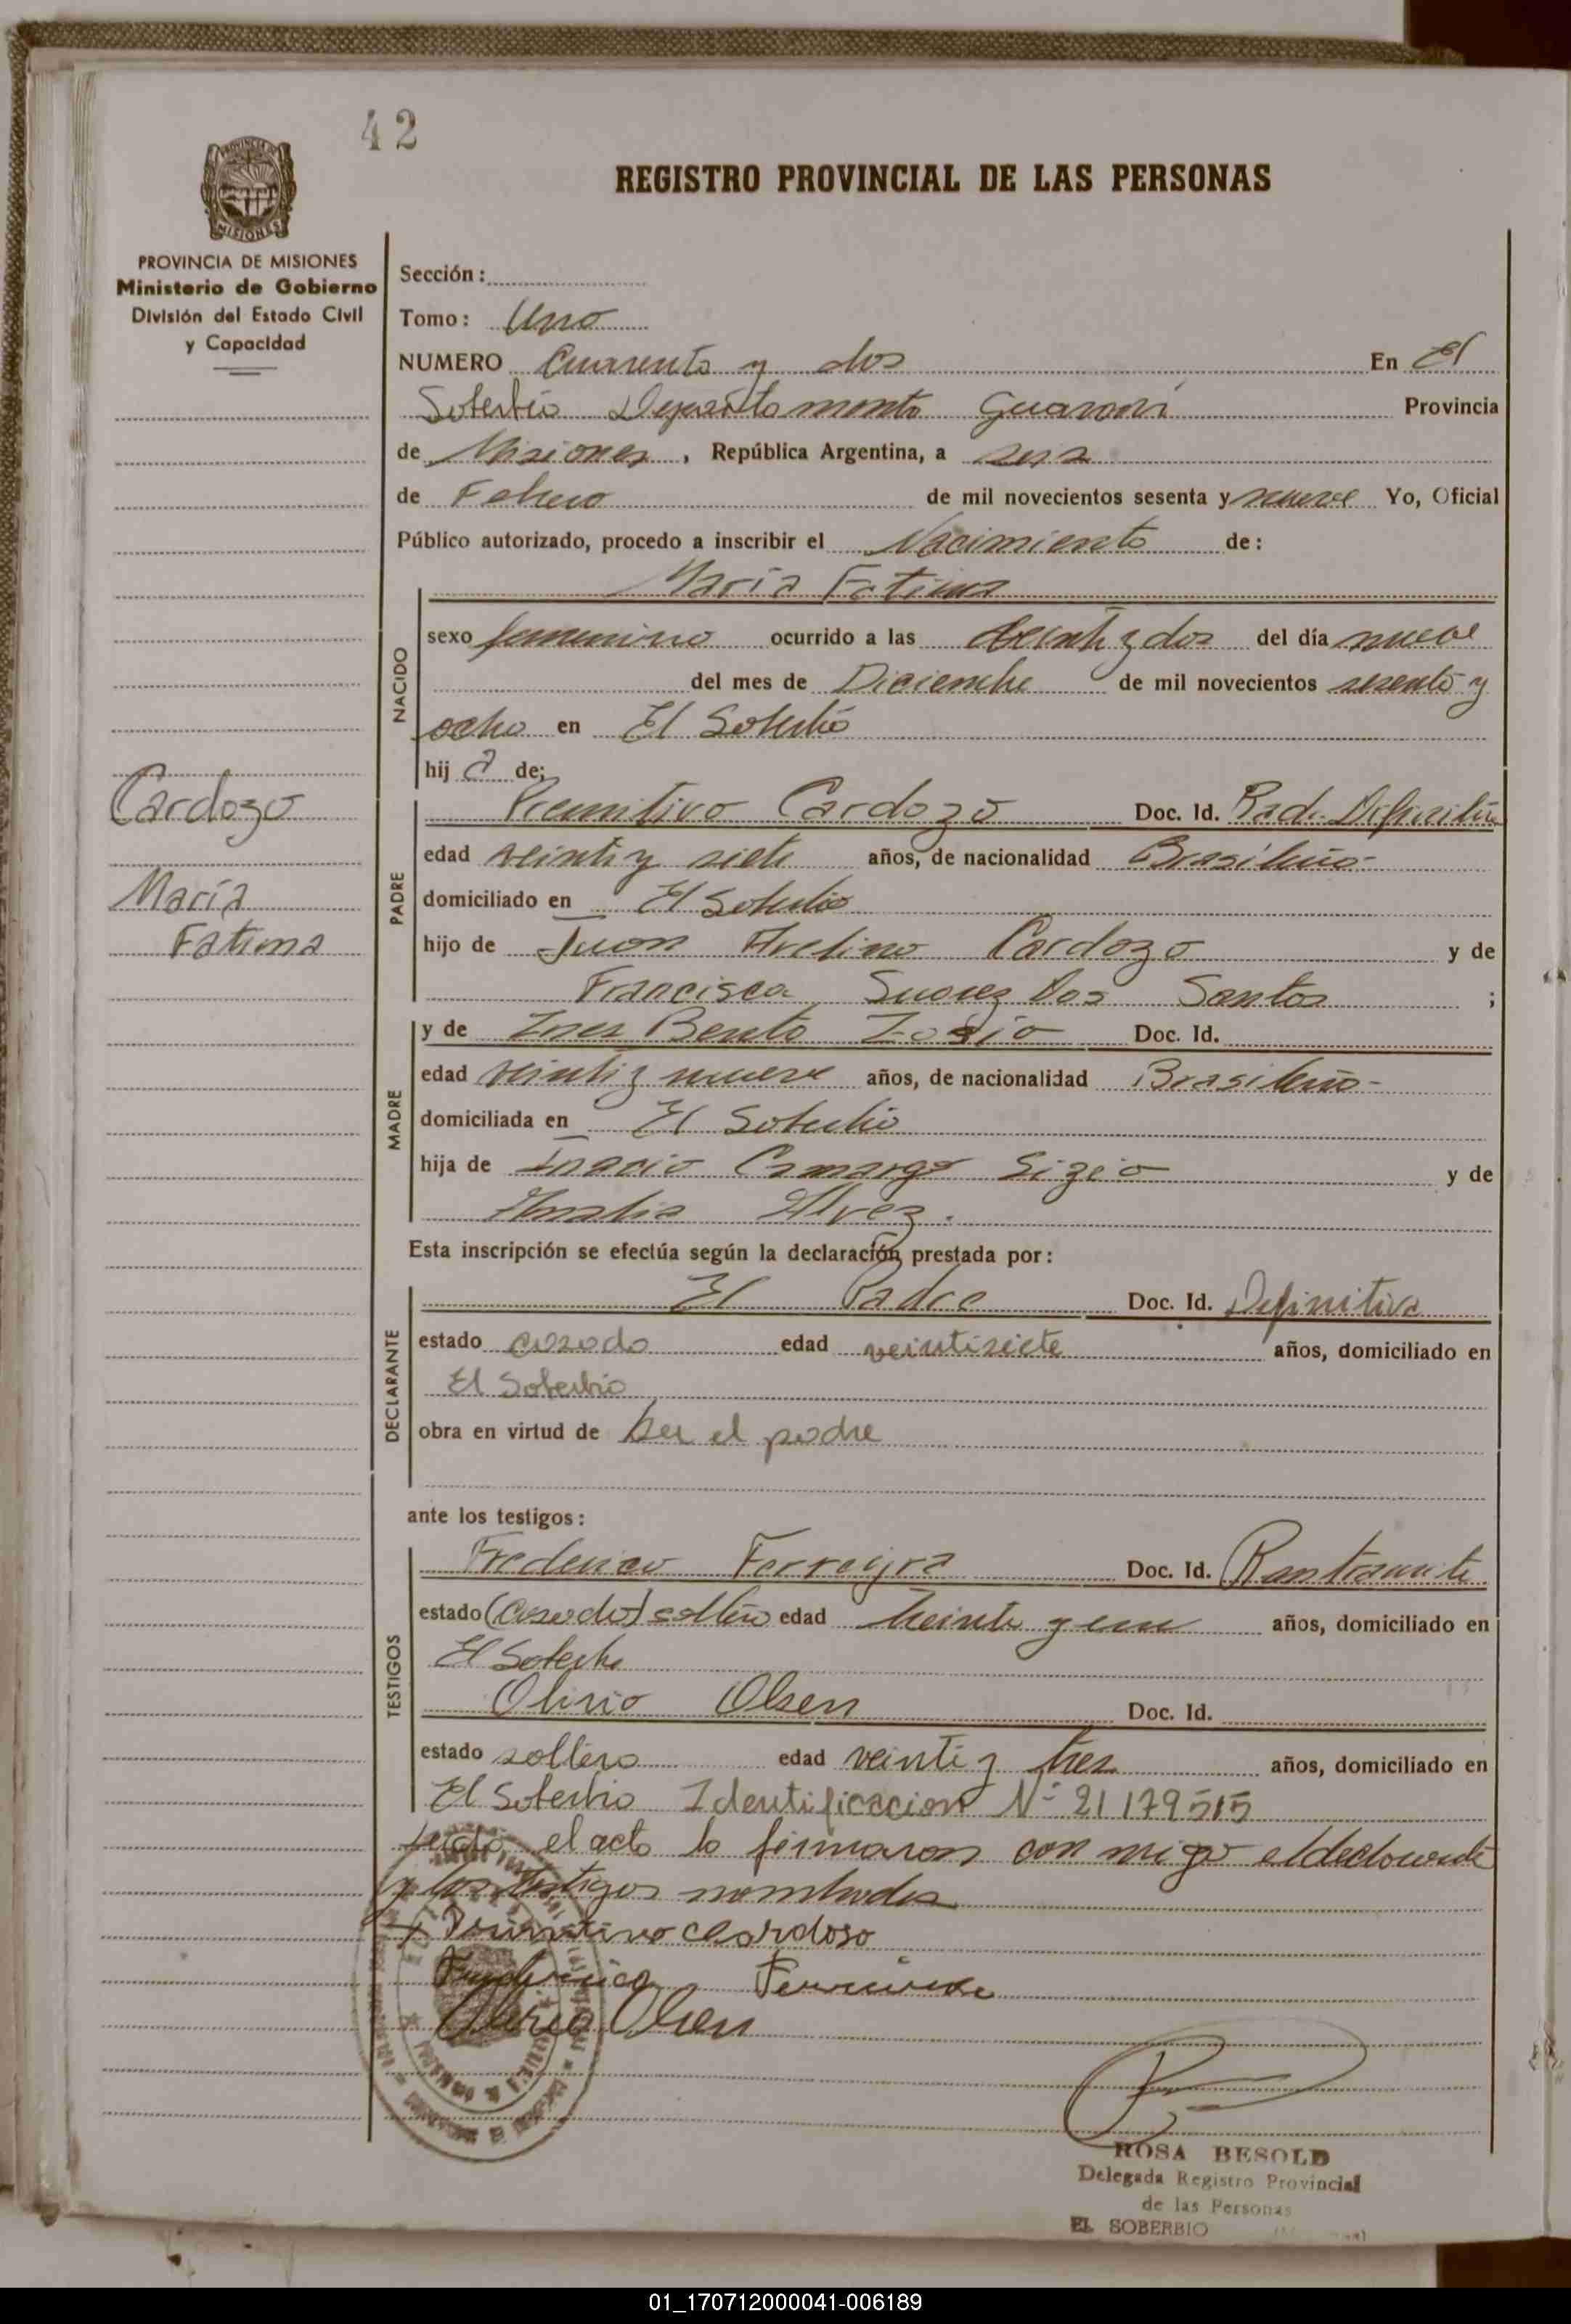 42
REGISTRO PROVINCIAL DE LAS PERSONAS
PROVINCIA DE MISIONES
Ministerio de Gobierno
División del Estado Civil
y Capacidad
Sección:
Tomo: Uno
NUMERO Cuarenta y dos En El
Soberbio Departamento Guaraní Provincia
de Misiones, República Argentina, a seis
de Febrero de mil novecientos sesenta y nueve Yo, Oficial
Público autorizado, procedo a inscribir el Nacimiento de:
María Fatima
NACIDO
sexo femenino ocurrido a las veinti y dos del día nueve
del mes de Diciembre de mil novecientos sesenta y
ocho en El Soberbio
hij a de;
Cardozo
María
Fatima
PADRE
Premitivo Cardozo Doc. Id. Rad. Definitiva
edad veinti y siete años, de nacionalidad Brasileño-
domiciliado en El Soberbio
hijo de Juan Avelino Cardozo y de
Francisca Suarez Dos Santos ;
MADRE
y de Ines Bento Doc. Id.
edad veinti y nueve años, de nacionalidad Brasileño-
domiciliada en El Soberbio
hija de Inacio Camargo Sizeio y de
Amalia Alvez.
Esta inscripción se efectúa según la declaración prestada por:
DECLARANTE
El Padre Doc. Id. Definitiva
estado casado edad veintisiete años, domiciliado en
El Soberbio
obra en virtud de Ser el padre
ante los testigos:
TESTIGOS
Frederico Ferreyra Doc. Id.
estado (Casado) soltero edad treinta y un años, domiciliado en
El Soberbio
Olirio Olsen Doc. Id.
estado soltero edad veinti y tres años, domiciliado en
El Soberbio Identificacion Nº 21179515
el acto lo firmaron con migo el declarante
y los testigos nombrados
Primitivo Cardoso
Olirio Olsen
ROSA BESOLD
Delegada Registro Provincial
de las Personas
EL SOBERBIO
01_170712000041-006189